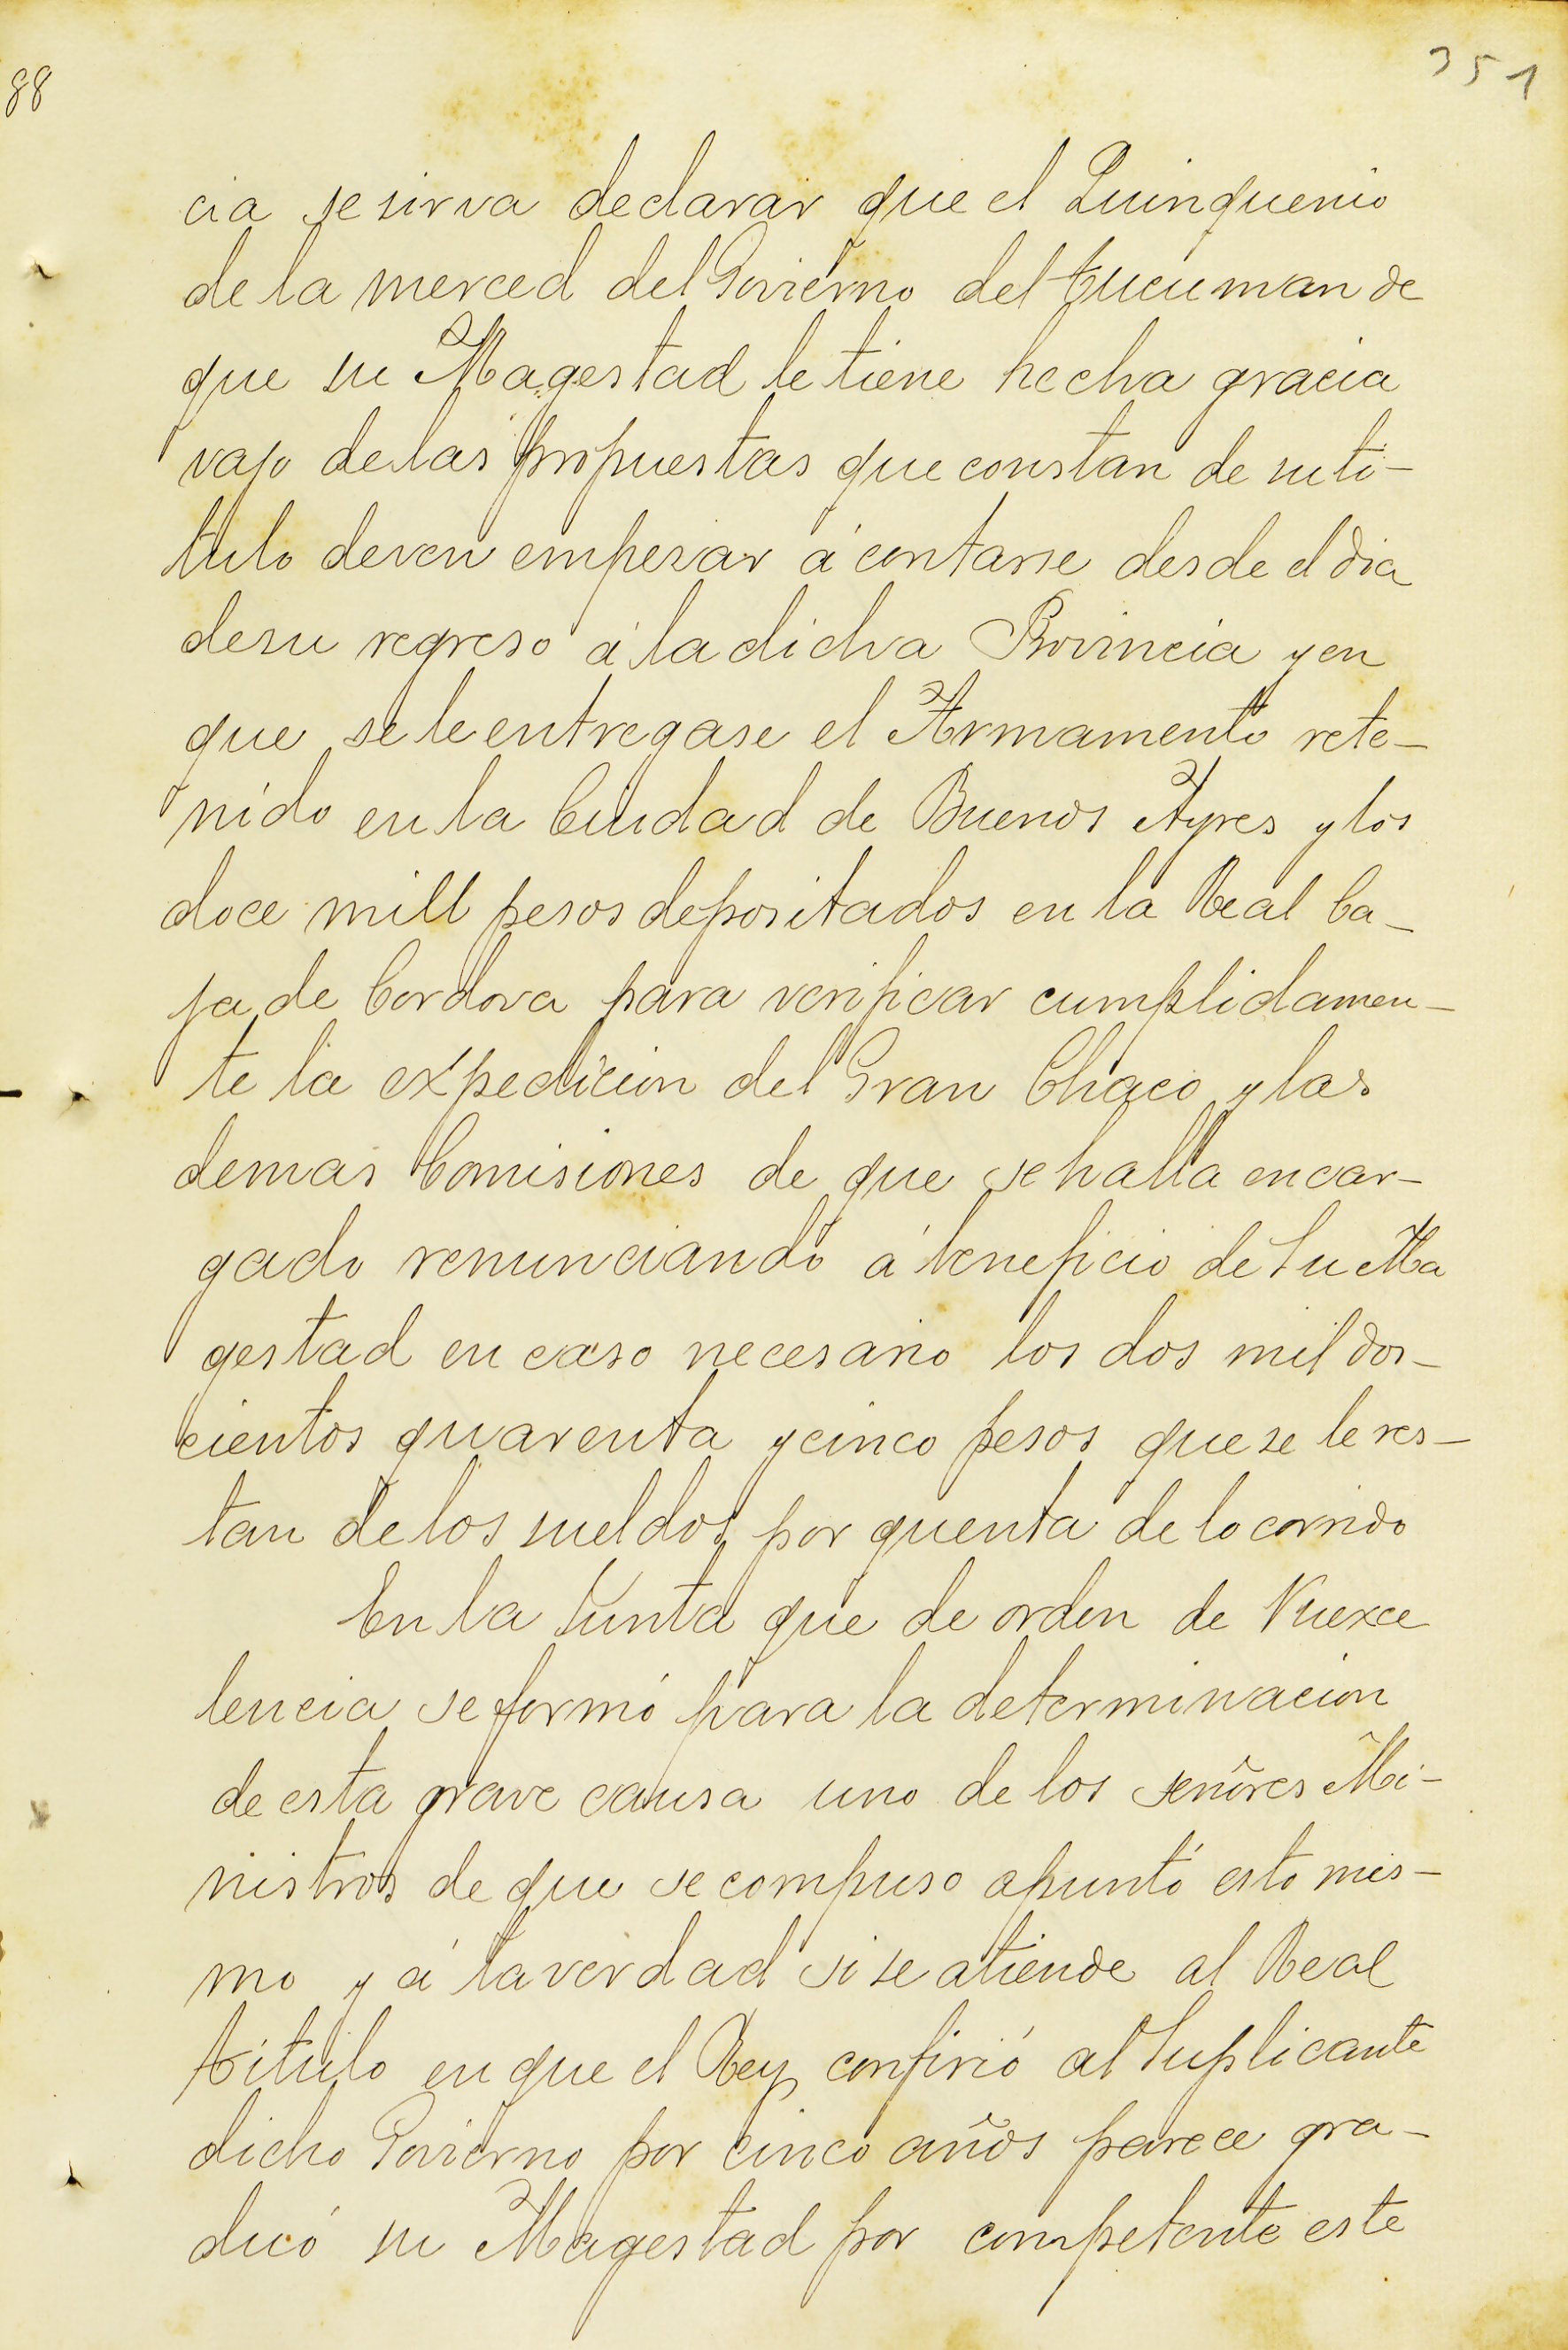 88
351
cia se sirva declarar que el Quinquenio
de la merced del Govierno del tucuman de
que su Magestad le tiene hecha gracia
vajo de las propuestas que constan de su ti-
tulo deven empesar á contarse desde el dia
de su regreso á la dicha Provincia y en
que se le entregase el Armamento rete-
nido en la Ciudad de Buenos Ayres y los
doce mill pesos depositados en la Real Ca-
ja de Cordova para verificar cumplidamen-
te la expedicion del Gran Chaco y las
demas Comisiones de que se halla encar-
gado renunciando á beneficio de Su Ma
gestad en caso necesario los dos mil dos-
cientos quarenta y cinco pesos que se le res-
tan de los sueldos por quenta de lo corrido
En la Junta que de orden de Vuexce
lencia se formó para la determinacion
de esta grave causa uno de los señores Mi-
nistros de que se compuso apuntó esto mis-
mo y á la verdad si se atiende al Real
titulo en que el Rey confirió al Suplicante
dicho Govierno por cinco años parece gra-
ducó su Magestad por competente este